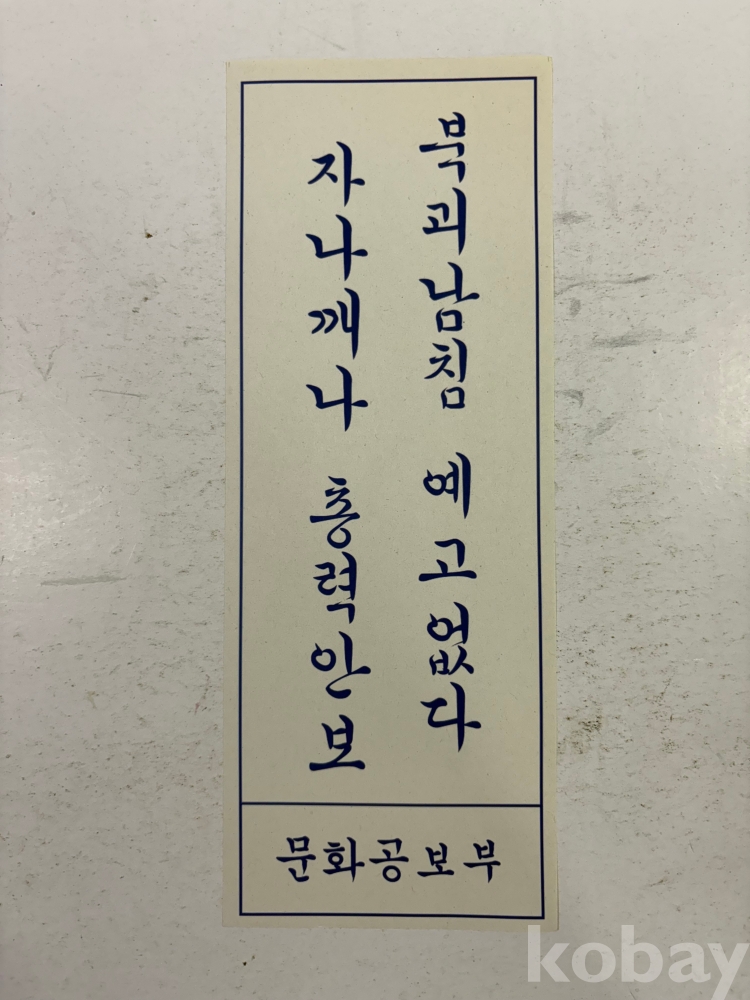 북괴남침 예고없다
자나깨나 총력안보
문화공보부
kobay